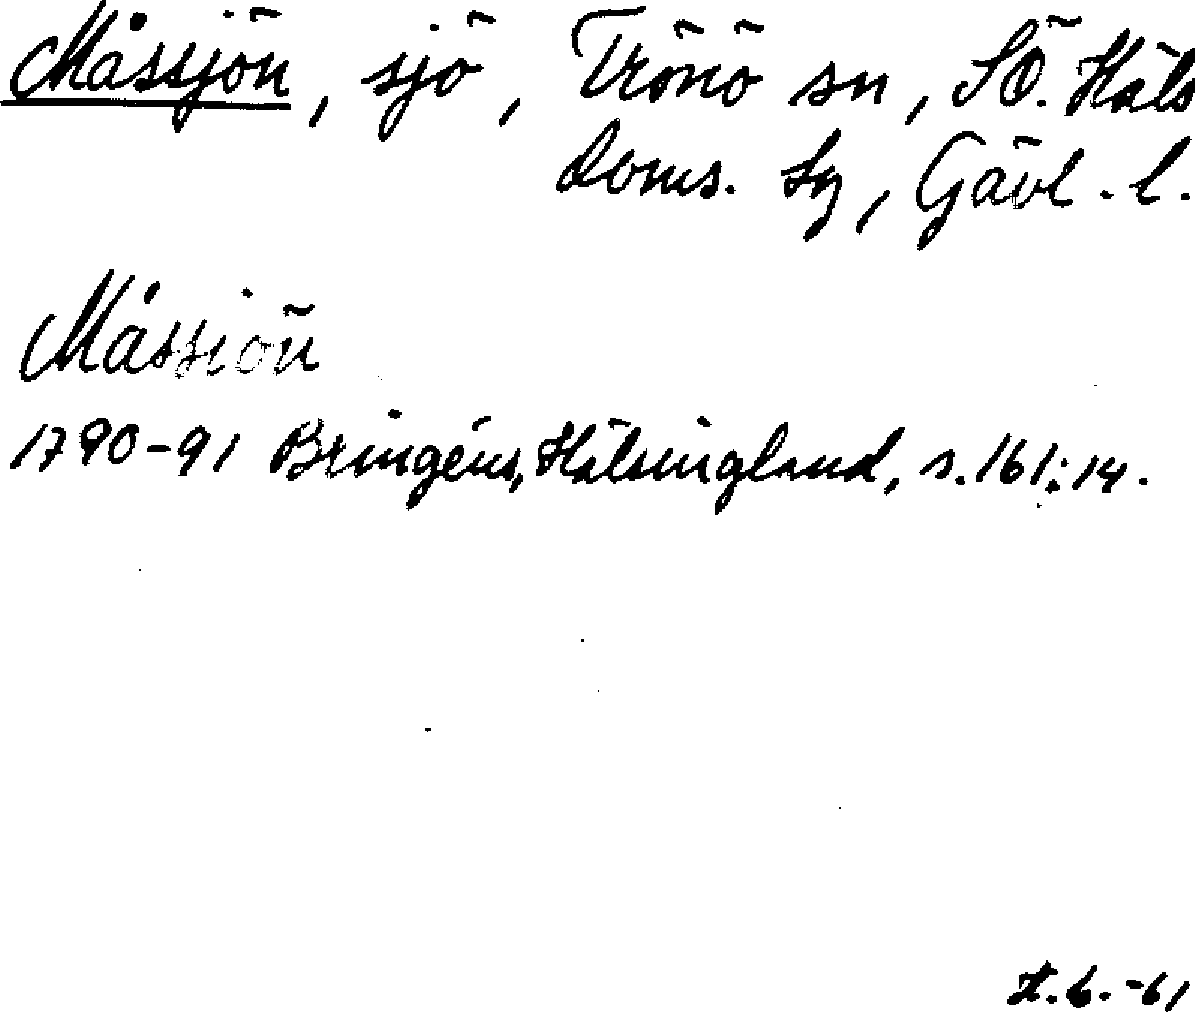 Måssjön, sjö, Trönö sn, SÖ. Häls
doms. sg, Gävl. l.
Måssiön
1790-91 Bringéus, Hälsingland, s. 161:14.